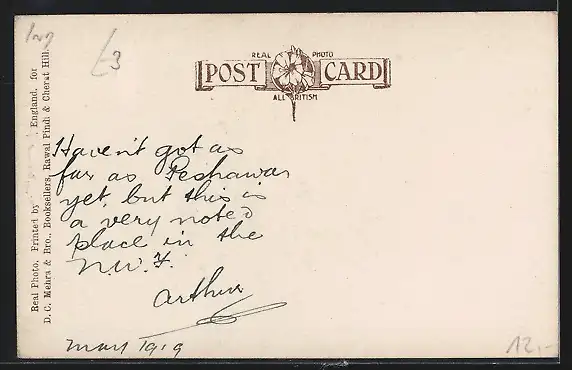 REAL PHOTO
POST CARD
ALL BRITISH
Real Photo, Printed by , England, for
D. C. Mehra & Bro., Booksellers, Rawal Pindi & Cherat Hill
£3
Haven't got as
far as Peshawar
yet, but this is
a very noted
place in the
N.W.F.
Arthur
May 1919
12,-